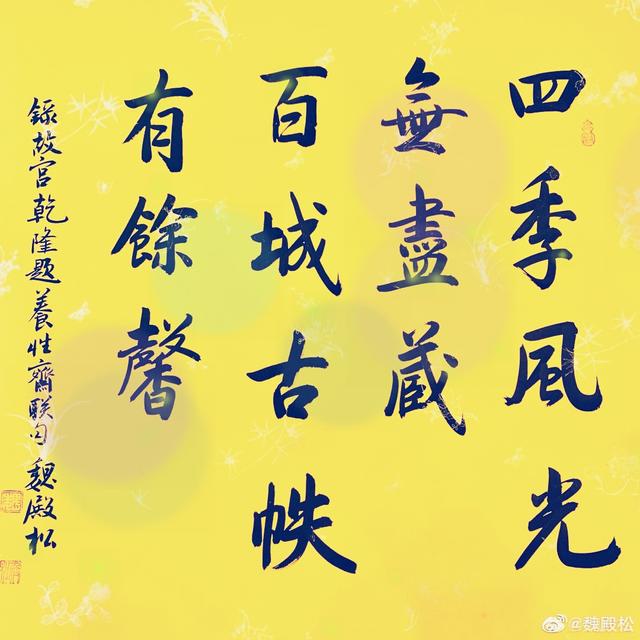 四季風光
無盡蔵
百城古帙
有餘馨
錄故宮乾隆題養性齋联句魏殿松
@魏殿松